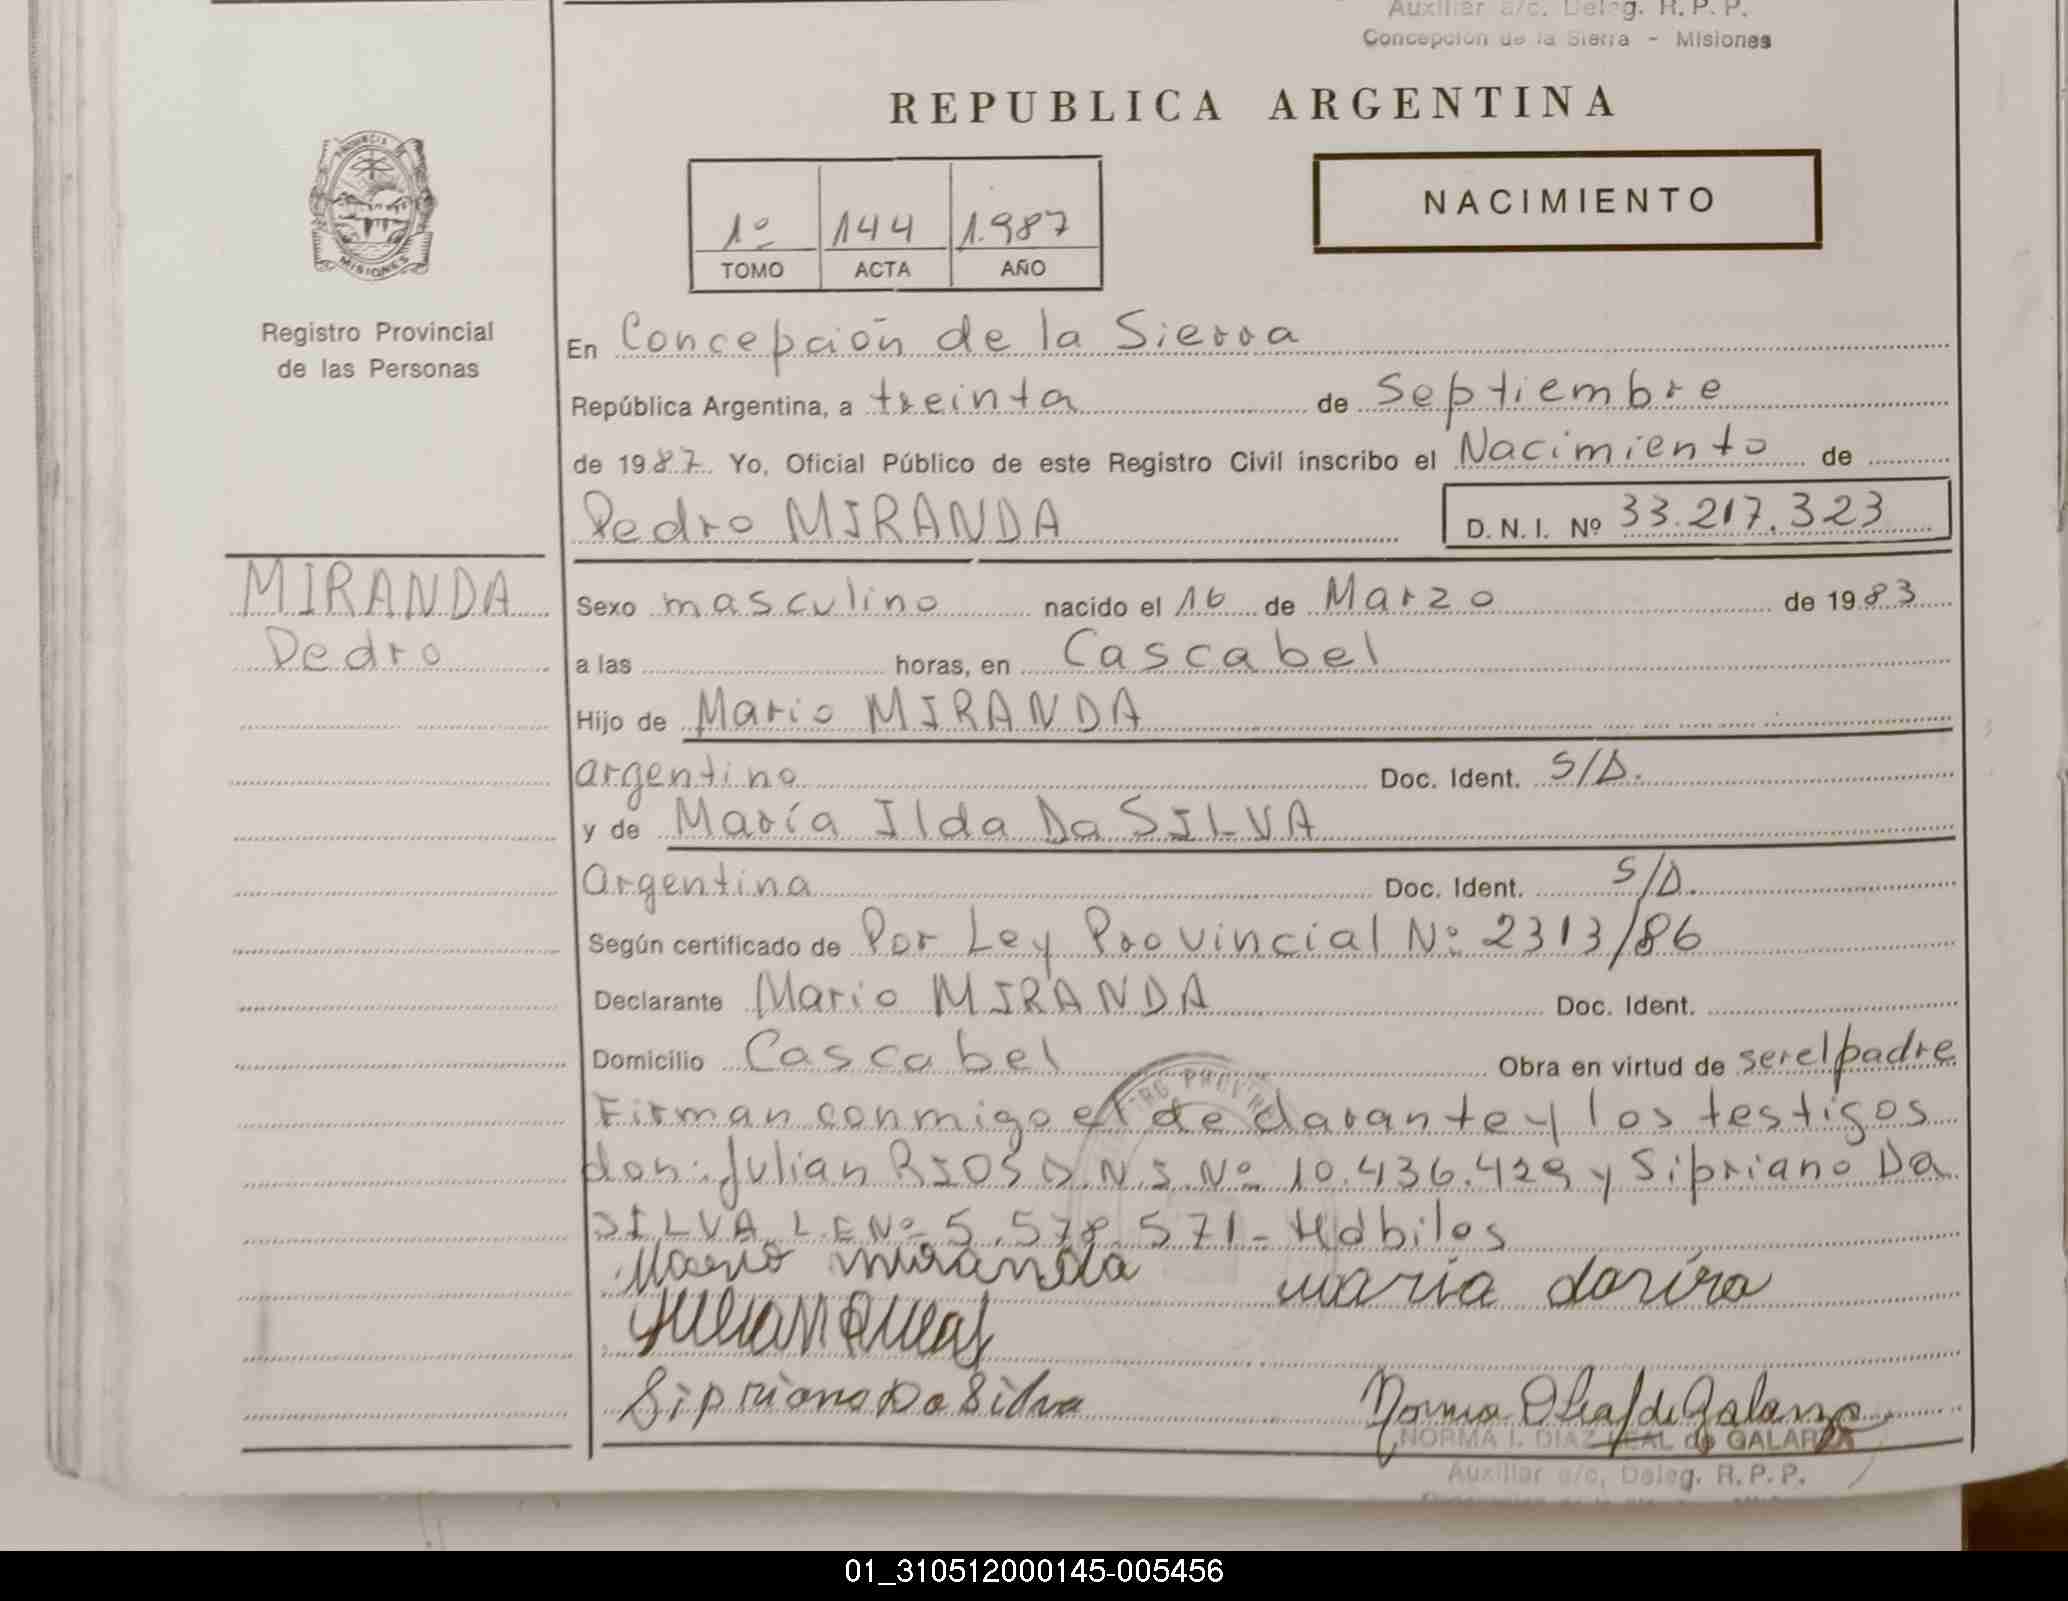 Auxiliar a/c. Deleg. R. P. P.
Concepción de la Sierra - Misiones
REPUBLICA ARGENTINA
PROVINCIA DE
MISIONES
1º 144 1.987
TOMO ACTA AÑO
NACIMIENTO
Registro Provincial
de las Personas
En Concepción de la Sierra
República Argentina, a treinta de Septiembre
de 1987. Yo, Oficial Público de este Registro Civil inscribo el Nacimiento de
Pedro MIRANDA D. N. I. Nº 33.217.323
MIRANDA
Pedro
Sexo masculino nacido el 16 de Marzo de 1983
a las horas, en Cascabel
Hijo de Mario MIRANDA
argentino Doc. Ident. S/D.
y de María Ilda Da SILVA
Argentina Doc. Ident. S/D.
Según certificado de Por Ley Provincial Nº 2313/86
Declarante Mario MIRANDA Doc. Ident.
Domicilio Cascabel Obra en virtud de ser el padre
Firman conmigo el declarante y los testigos
don: Julian RIOS D.N.I. Nº 10.436.429 y Sipriano Da
SILVA L.E Nº 5.578.571- Habiles
Mario miranda maria
Sipriano Da Silva
NORMA I. DIAZ LEAL de GALARZA
Auxiliar a/c. Deleg. R. P. P.
01_310512000145-005456